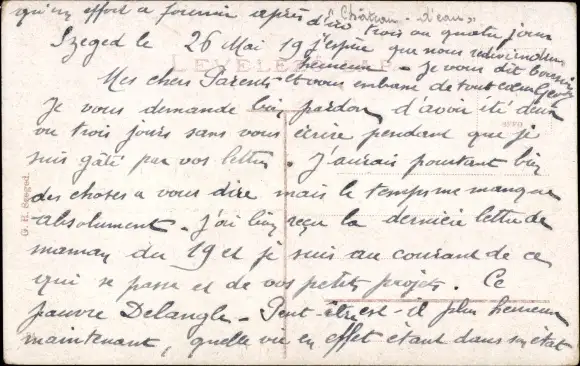 qu'un effort à fournir après
d'ici trois ou quatre jours
"Château - d'eau"
Szeged le 26 Mai 19 j'espère que nous redeviendrons
LEVELEZŐLAP
heureux - Je vous dit bonsoir
Mes chers Parents et vous embrasse de tout cœur
Je vous demande bien pardon d'avoir été deux
ou trois jours sans vous écrire pendant que je
suis gâté par vos lettres. J'aurais pourtant bien
des choses a vous dire mais le temps me manque
absolument - J'ai bien reçu la dernière lettre de
maman du 19 et je suis au courant de ce
qui se passe et de vos petits projets. Ce
pauvre Delangle - Peut-être est-il plus heureux
maintenant, quelle vie en effet étant dans son état
G. H. Szeged.